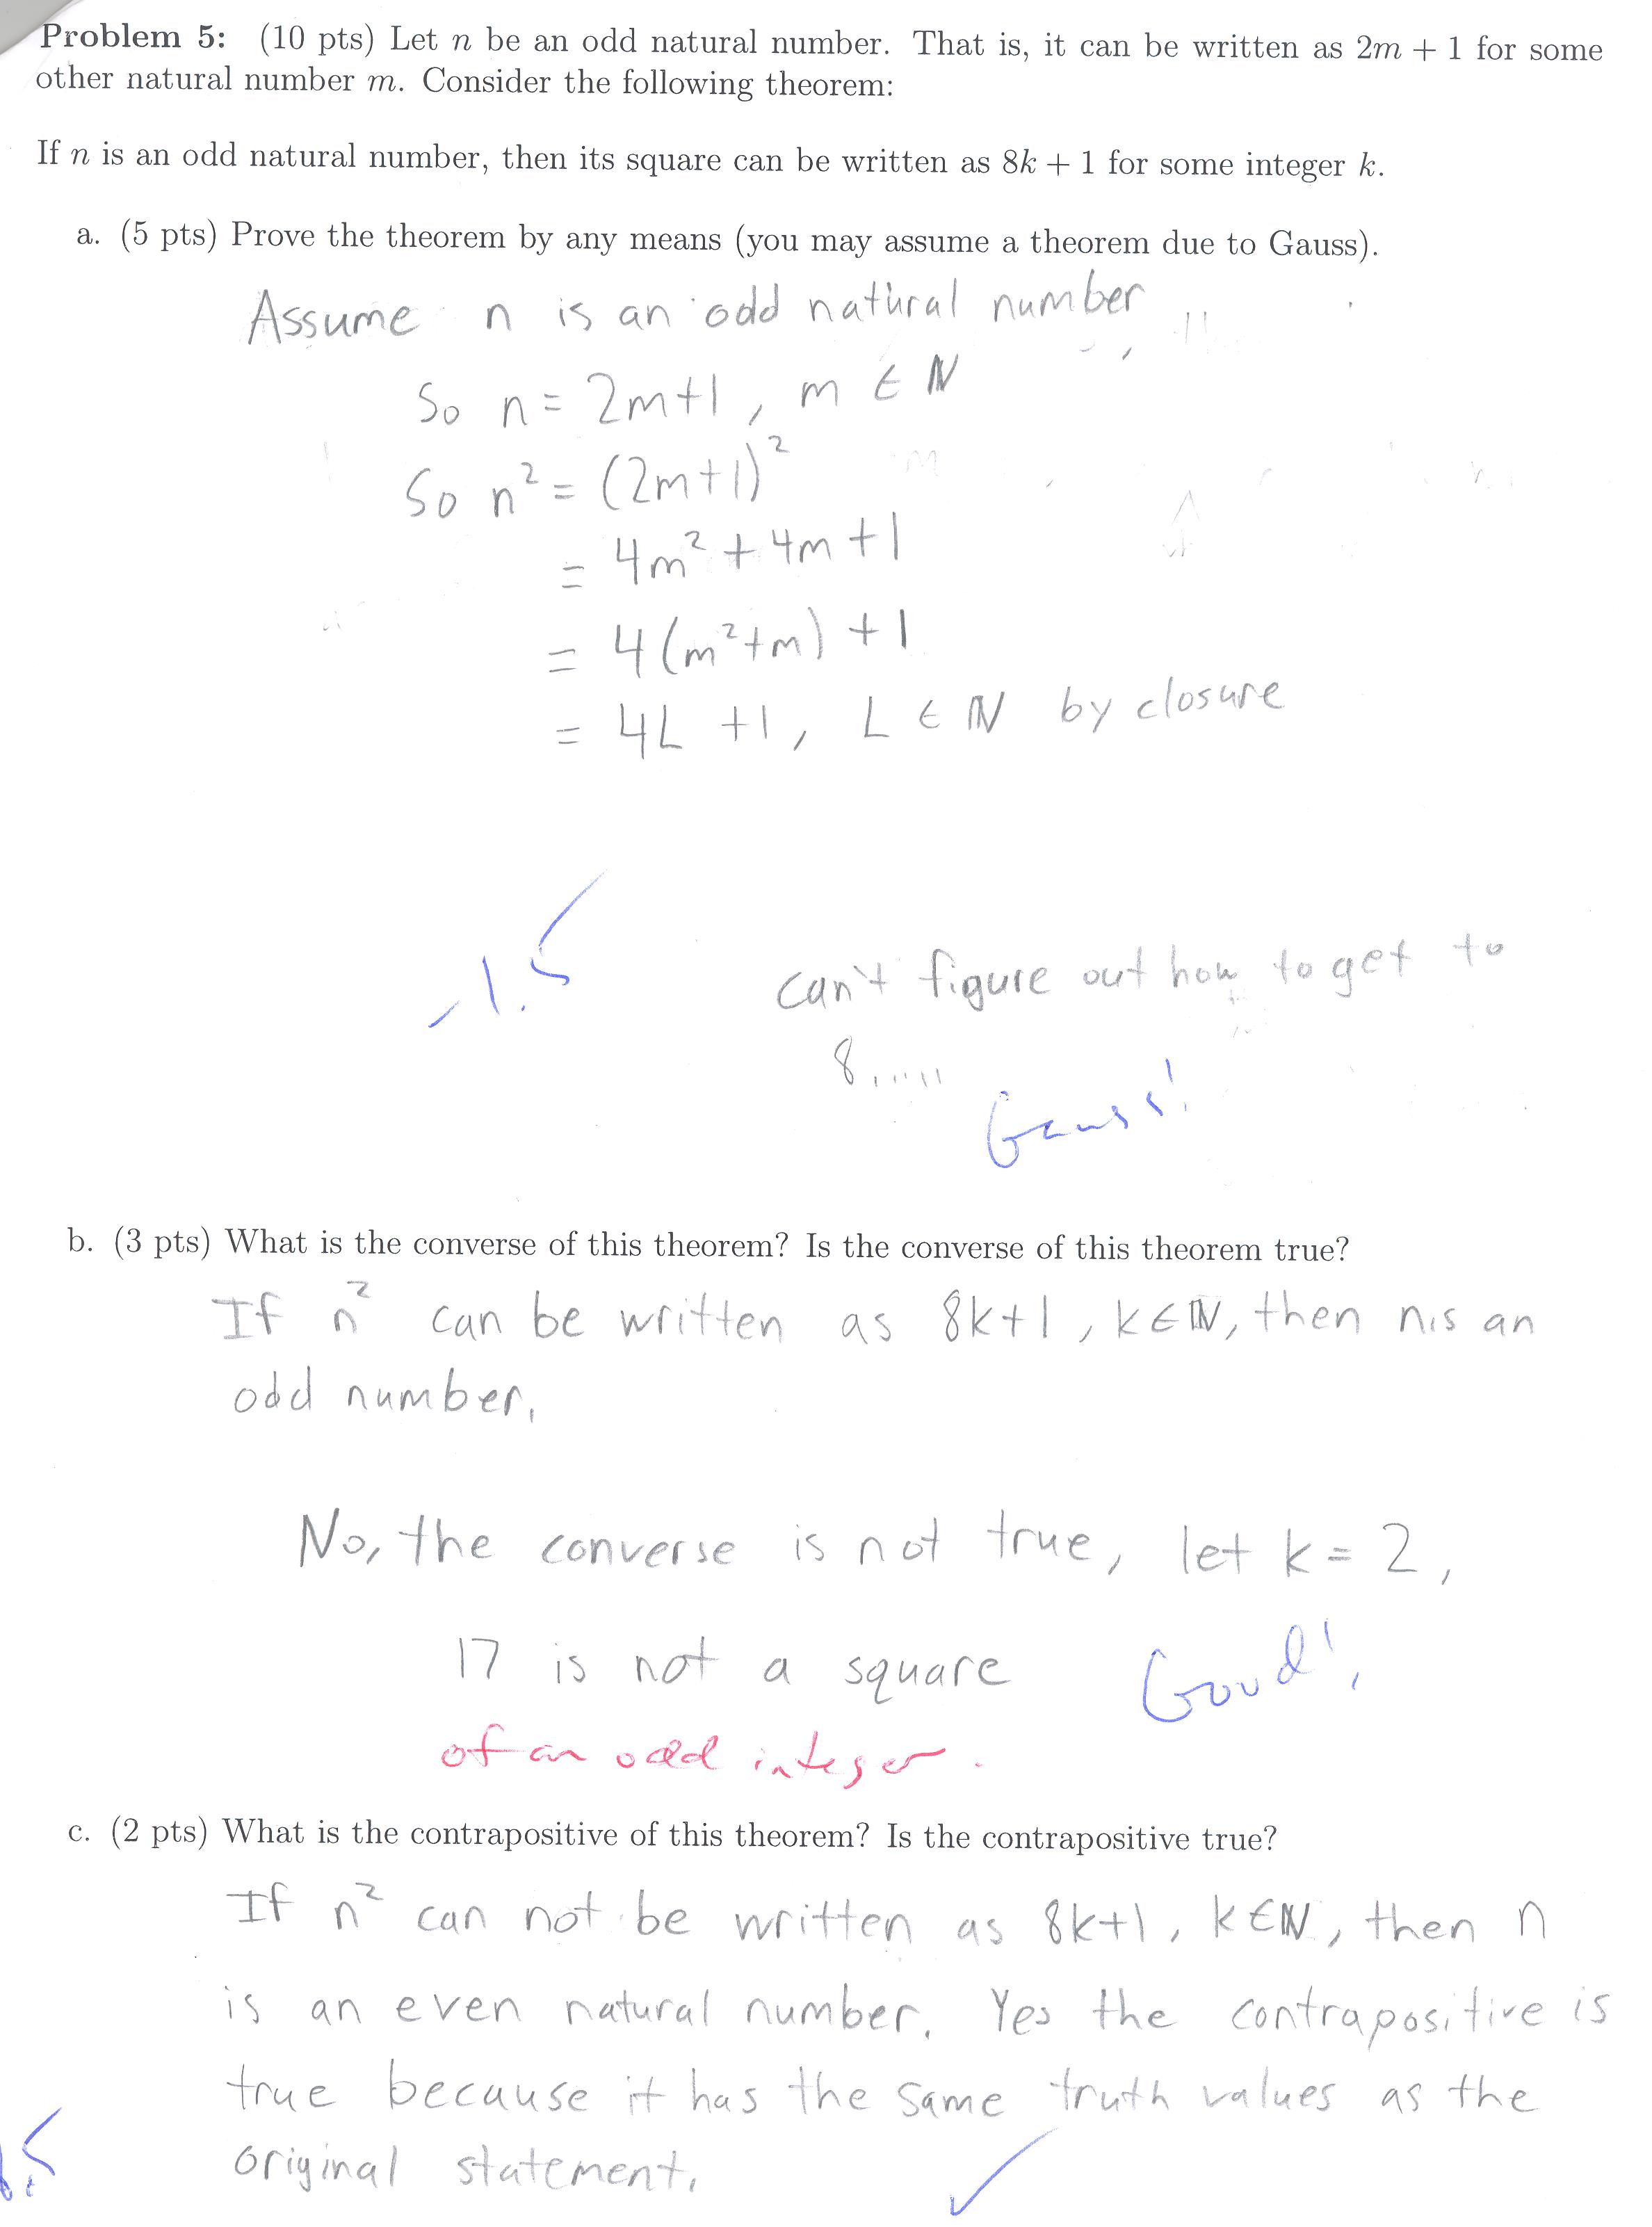 Problem 5: (10 pts) Let n be an odd natural number. That is, it can be written as 2m + 1 for some
other natural number m. Consider the following theorem:
If n is an odd natural number, then its square can be written as 8k + 1 for some integer k.
a. (5 pts) Prove the theorem by any means (you may assume a theorem due to Gauss).
Assume n is an odd natural number
So n = 2m+1, m ∈ ℕ
So n² = (2m+1)²
= 4m² + 4m + 1
= 4(m²+m) + 1
= 4L + 1, L ∈ ℕ by closure
-1.5
can't figure out how to get to
8.....
Gauss!
b. (3 pts) What is the converse of this theorem? Is the converse of this theorem true?
If n² can be written as 8k+1, k∈ℕ, then n is an
odd number.
No, the converse is not true, let k = 2,
17 is not a square
Good!
of an odd integer.
c. (2 pts) What is the contrapositive of this theorem? Is the contrapositive true?
If n² can not be written as 8k+1, k∈ℕ, then n
is an even natural number. Yes the contrapositive is
true because it has the same truth values as the
original statement.